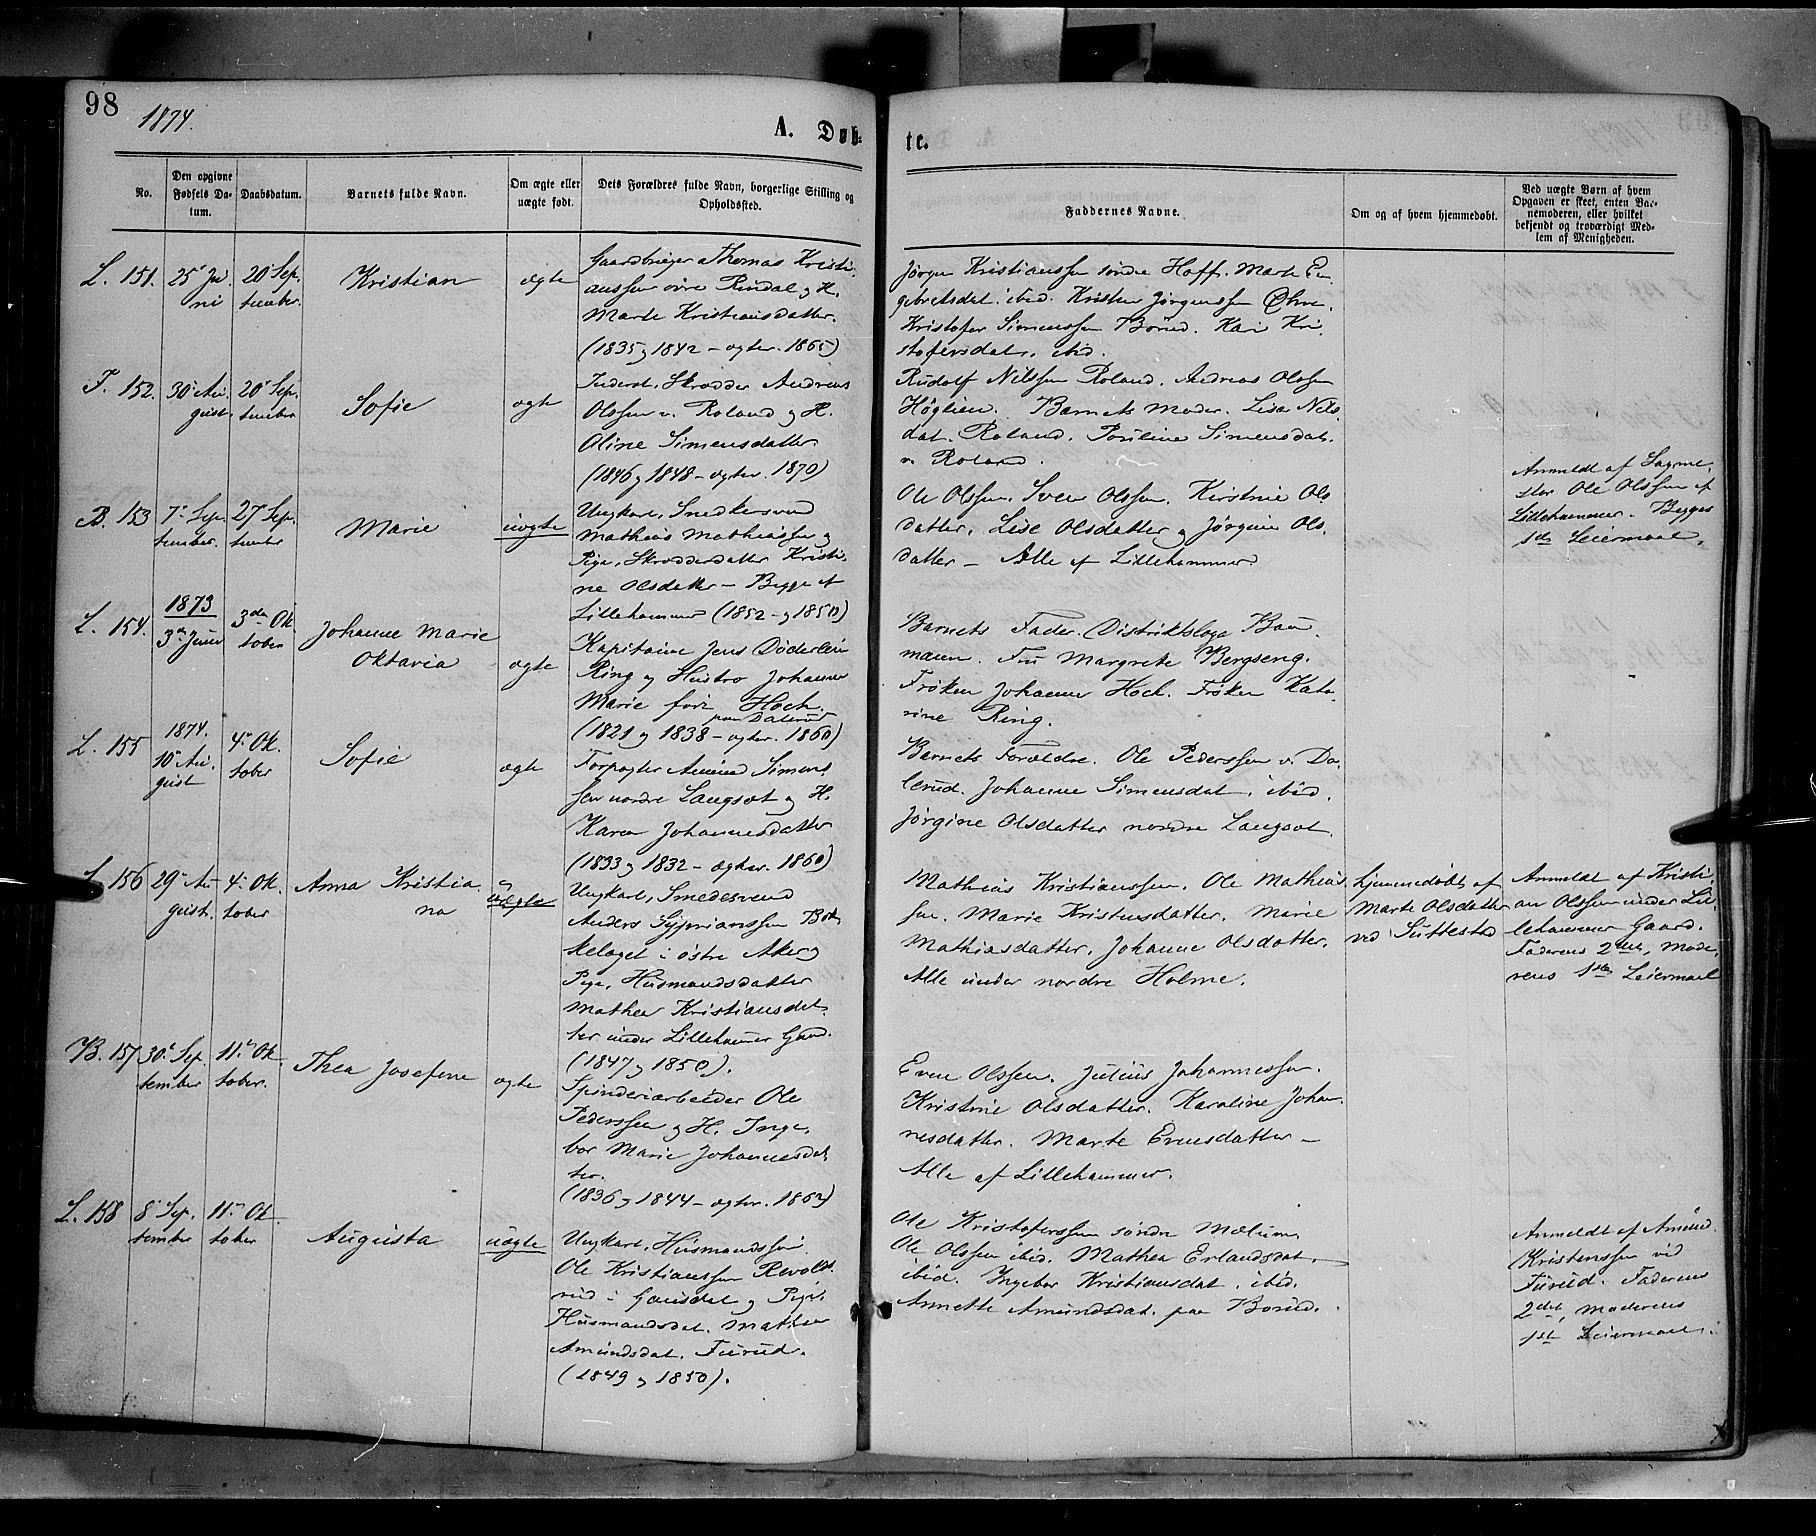 98
1874.
A. Døb-
te.
No.
Den opgivne
Fødsels Da-
tum.
Daabsdatum.
Barnets fulde Navn.
Om ægte eller
uægte født.
Dets Forældres fulde Navn, borgerlige Stilling og
Opholdssted.
Faddernes Navne.
Om og af hvem hjemmedøbt.
Ved uægte Børn af hvem
Opgaven er skeet, enten Bar-
nemoderen, eller hvilket
bekjendt og troværdigt Med-
lem af Menigheden.
L. 151.
25de Ju-
ni
20de Sep-
tember.
Kristian
ægte
Gaardbruger Thomas Kristi-
anssen øvre Rindal og H.
Marte Kristiansdatter.
(1835 og 1842 - ægtev. 1865)
Jørgen Kristianssen søndre Hoff. Marte En-
gebretsdat. ibid. Kristen Jørgenssen
Kristofer Simenssen Børud. Kari Kri-
stofersdat. ibid.
F. 152.
30de Au-
gust.
20de Sep-
tember
Sofie
ægte
Inderst, Skrædder Andreas
Olssen v. Roland og H.
Oline Simensdatter
(1846 og 1848 - ægtev. 1870)
Rudolf Nilssen Roland. Andreas Olssen
Høglien. Barnets Moder. Lisa Nils-
dat. Roland. Pouline Simensdat.
v. Roland.
B. 153
7de Sep-
tember.
27de Sep-
tember
Marie
uægte
Ungkarl, Snedkersvend
Mathias Mathiassen og
Pige, Skrædderdatter Kristi-
ne Olsdatter - Begge af
Lillehammer (1852 og 1850)
Ole Olssen. Sven Olssen. Kirstine Ols-
datter, Lise Olsdatter og Jørgine Ols-
datter - Alle af Lillehammer.
Anmeldt af Sagme-
ster Ole Olssen af
Lillehammer. Begges
1ste Leiermaal.
L. 154.
1873
3de Juni
3die Ok-
tober
Johanne Marie
Oktavia
ægte
Kapitaine Jens Døderlein
Ring og Hustro Johanne
Marie født Hoch.
paa Dalerud
(1821 og 1838 - ægtev. 1860)
Barnets Fader. Distriktslæge Bau-
mann. Fru Margrete Bergseng.
Frøken Johanne Hoch. Frøken Kata-
rine Ring.
L. 155
1874.
10de Au-
gust
4de Ok-
tober
Sofie
ægte
Forpagter Amund Simens-
sen nordre Langset og H.
Karen Johannesdatter
(1833 og 1832 - ægtev. 1860)
Barnets Forældre. Ole Pederssen v. Da-
lerud. Johanne Simensdat. ibid.
Jørgine Olsdatter nordre Langset.
L. 156
29de Au-
gust.
4de Ok-
tober
Anna Kristia-
na
uægte
Ungkarl, Smedesvend
Anders Syprianssen
i østre Aker og
Pige, Husmandsdatter
Mathea Kristiansdat-
ter under Lillehammer Gaard.
(1847 og 1850).
Mathias Kristianssen. Ole Mathias-
sen. Marie Kristensdatter. Marie
Mathiasdatter. Johanne Olsdatter.
Alle under nordre Holme.
hjemmedøbt af
Marte Olsdatter
ved Suttestad
Anmeldt af Kristi-
an Olssen under Lil-
lehammer Gaard.
Faderens 2det, Mode-
rens 1ste Leiermaal
B. 157
30de Sep-
tember
11te Ok-
tober.
Thea Josefine
ægte
Spinderiarbeider Ole
Pederssen og H. Inge-
bor Marie Johannesdat-
ter.
(1836 og 1844 - ægtev. 1862)
Even Olssen. Julius Johannessen.
Kristine Olsdatter. Karoline Johan-
nesdatter. Marte Evensdatter -
Alle af Lillehammer.
L. 158
8de Sep-
tember
11te Ok-
tober
Augusta
uægte
Ungkarl, Husmandssøn
Ole Kristianssen Revolds-
rud i Gausdal og Pige,
Husmandsdat. Mathea
Amundsdat. Furud.
(1849 og 1850).
Ole Kristoferssen søndre Mælum
Ole Olssen ibid. Mathea Erlandsdat.
ibid. Ingebor Kristiansdat. ibid.
Annette Amundsdat. paa Børud.
Anmeldt af Amund
Kristenssen ved
Furud. Faderens
2det, Moderens
1ste Leiermaal.